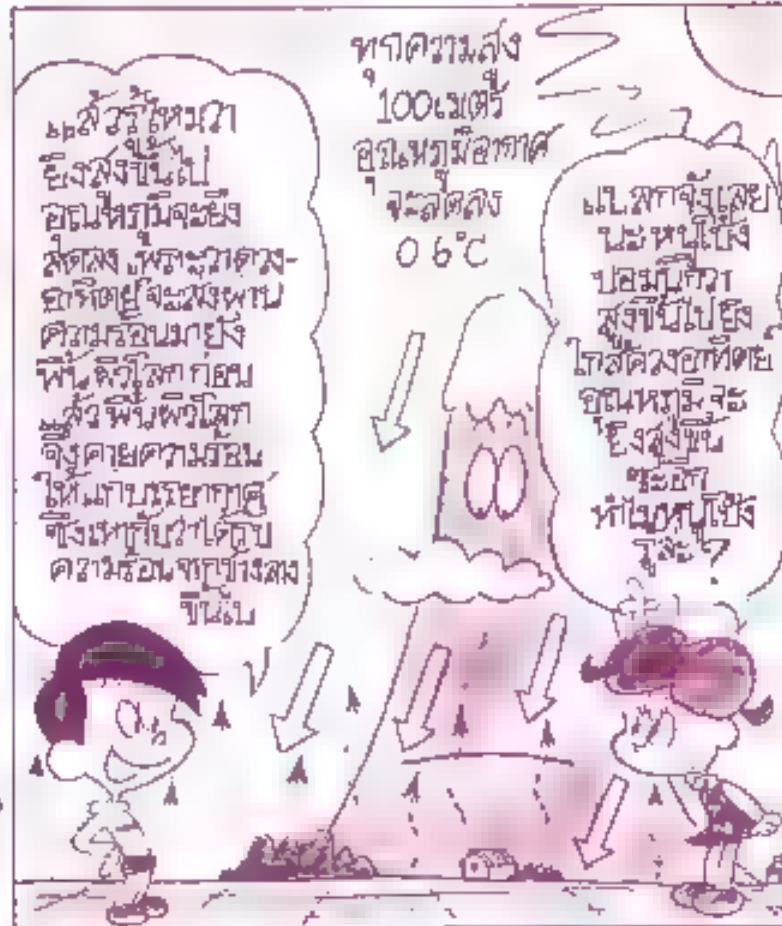 ทุกความสูง
100เมตร
อุณหภูมิอากาศ
จะลดลง
0 6°C
แล้วรู้ไหมว่า
ยิ่งสูงขึ้นไป
อุณหภูมิจะยิ่ง
ลดลง เพราะว่าดวง-
อาทิตย์จะส่งผ่าน
ความร้อนมายัง
พื้นผิวโลกก่อน
แล้วพื้นผิวโลก
จึงคายความร้อน
ให้แก่บรรยากาศ
ซึ่งเท่ากับว่าได้รับ
ความร้อนจากข้างล่าง
ขึ้นไป
แปลกจังเลย
นะหนูโป้ง
ปอมนึกว่า
สูงขึ้นไปยิ่ง
ใกล้ดวงอาทิตย์
อุณหภูมิจะ
ยิ่งสูงขึ้น
ซะอีก
ทำไมหนูโป้ง
รู้ล่ะ?